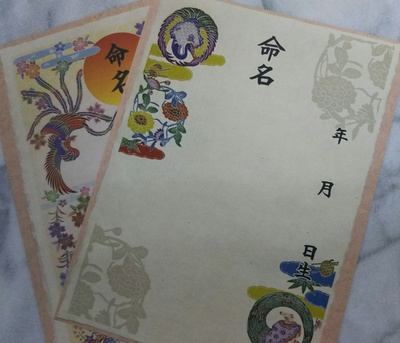 命名
年
月
日生
命名